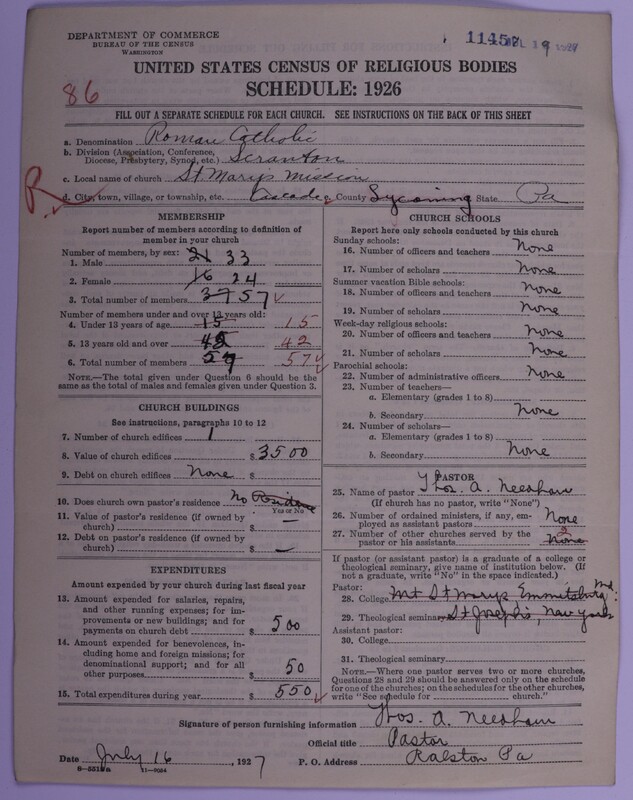 DEPARTMENT OF COMMERCE
BUREAU OF THE CENSUS
WASHINGTON
UNITED STATES CENSUS OF RELIGIOUS BODIES
86
SCHEDULE: 1926
FILL OUT A SEPARATE SCHEDULE FOR EACH CHURCH. SEE INSTRUCTIONS ON THE BACK OF THIS SHEET
a. Denomination Roman Catholic
b. Division (Association, Conference,
Diocese, Presbytery, Synod, etc.) Scranton
c. Local name of church St Marys Mission
R
d. City, town, village, or township, etc. Cascade e. County Lycoming State Pa
MEMBERSHIP
Report number of members according to definition of
member in your church
Number of members, by sex:
1. Male 21 33
2. Female 16 24
3. Total number of members 37 57
Number of members under and over 13 years old:
4. Under 13 years of age 15 15
5. 13 years old and over 42 42
6. Total number of members 57 57
NOTE.—The total given under Question 6 should be the
same as the total of males and females given under Question 3.
CHURCH BUILDINGS
See instructions, paragraphs 10 to 12
7. Number of church edifices 1
8. Value of church edifices $ 3500
9. Debt on church edifices None $
10. Does church own pastor's residence No Residence
Yes or No
11. Value of pastor's residence (if owned by
church) $ —
12. Debt on pastor's residence (if owned by
church) $ —
EXPENDITURES
Amount expended by your church during last fiscal year
13. Amount expended for salaries, repairs,
and other running expenses; for im-
provements or new buildings; and for
payments on church debt $ 500
14. Amount expended for benevolences, in-
cluding home and foreign missions; for
denominational support; and for all
other purposes $ 50
15. Total expenditures during year $ 550
CHURCH SCHOOLS
Report here only schools conducted by this church
Sunday schools:
16. Number of officers and teachers None
17. Number of scholars None
Summer vacation Bible schools:
18. Number of officers and teachers None
19. Number of scholars None
Week-day religious schools:
20. Number of officers and teachers None
21. Number of scholars None
Parochial schools:
22. Number of administrative officers None
23. Number of teachers—
a. Elementary (grades 1 to 8)
b. Secondary None
24. Number of scholars—
a. Elementary (grades 1 to 8)
b. Secondary None
PASTOR
25. Name of pastor Thos. A. Needham
(If church has no pastor, write "None")
26. Number of ordained ministers, if any, em-
ployed as assistant pastors None
27. Number of other churches served by the
pastor or his assistants None 2
If pastor (or assistant pastor) is a graduate of a college or
theological seminary, give name of institution below. (If
not a graduate, write "No" in the space indicated.)
Pastor:
28. College Mt St Marys Emmitsburg Md.
29. Theological seminary St Josephs, New York
Assistant pastor:
30. College
31. Theological seminary
NOTE.—Where one pastor serves two or more churches,
Questions 28 and 29 should be answered only on the schedule
for one of the churches; on the schedules for the other churches,
write "See schedule for church."
Signature of person furnishing information Thos. A. Needham
Official title Pastor
Date July 16, 1927 P. O. Address Ralston Pa